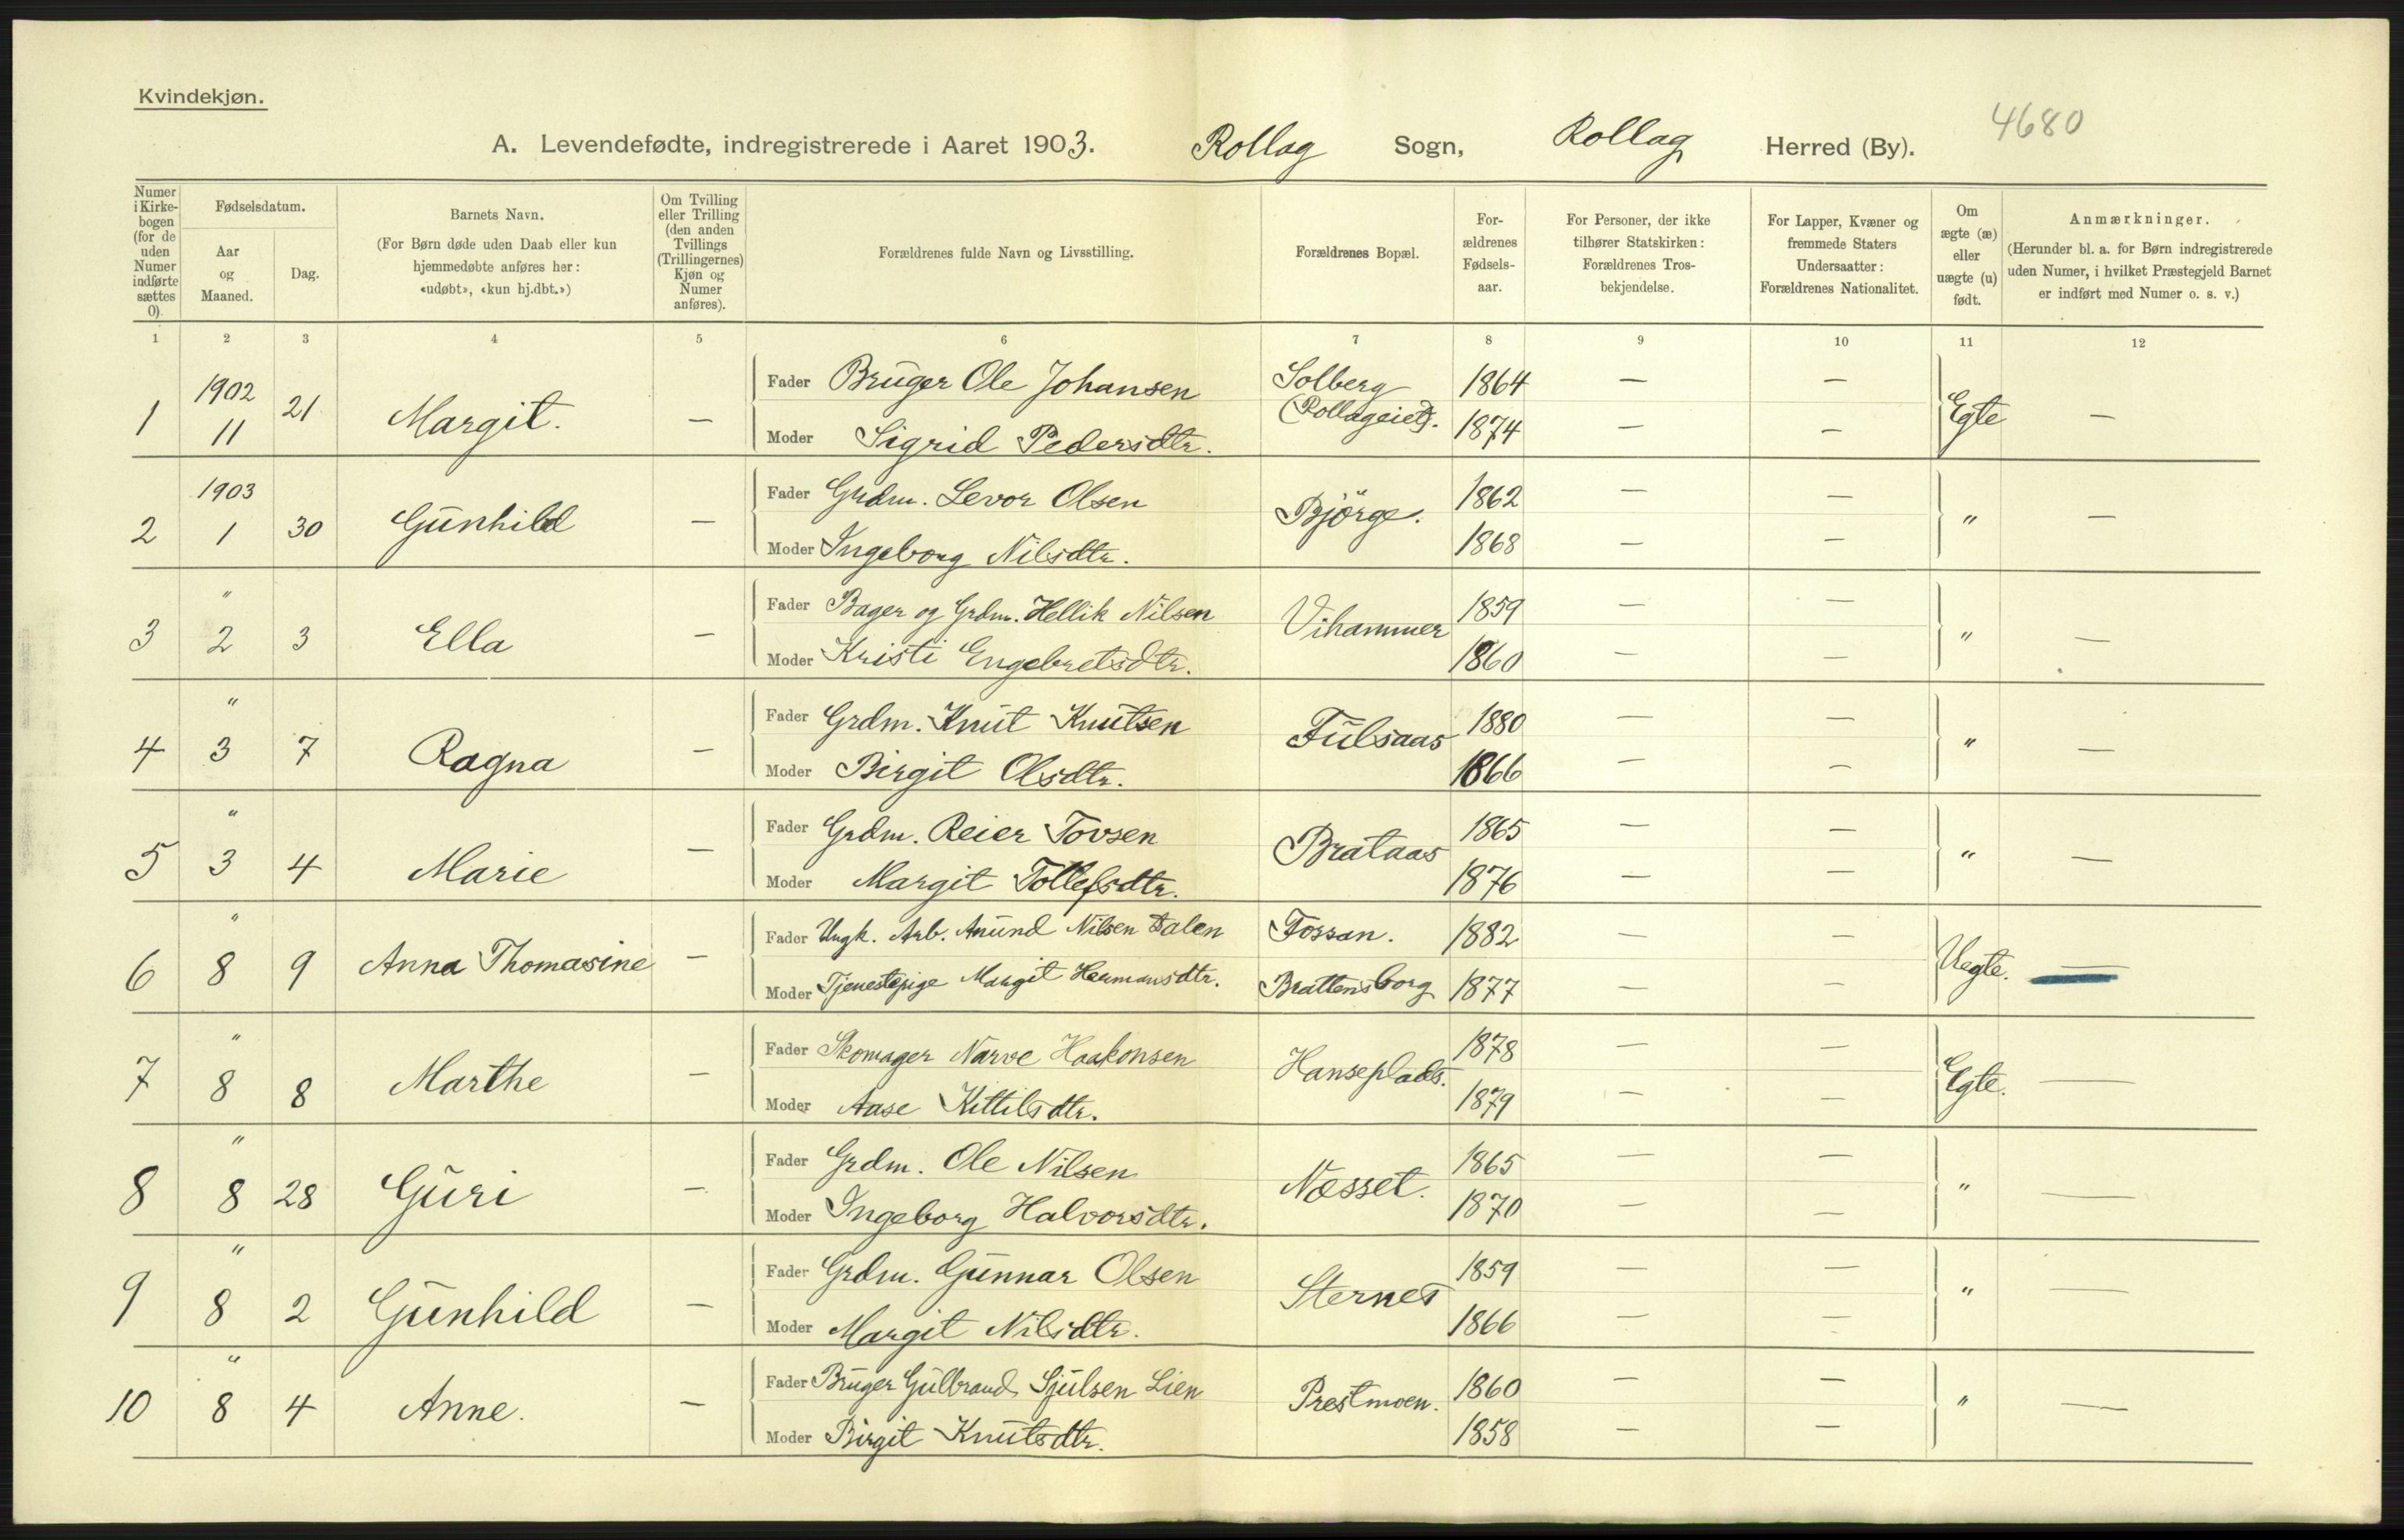 Kvindekjøn.
4680
A. Levendefødte, indregistrerede i Aaret 1903. Rollag Sogn, Rollag Herred (By).
Numer i Kirke-bogen (for de uden Numer indførte sættes 0). | Fødselsdatum. Aar og Maaned. | Dag. | Barnets Navn. (For Børn døde uden Daab eller kun hjemmedøbte anføres her: «udøbt», «kun hj.dbt.») | Om Tvilling eller Trilling (den anden Tvillings (Trillingernes) Kjøn og Numer anføres). | Forældrenes fulde Navn og Livsstilling. | Forældrenes Bopæl. | For-ældrenes Fødsels-aar. | For Personer, der ikke tilhører Statskirken: Forældrenes Tros-bekjendelse. | For Lapper, Kvæner og fremmede Staters Undersaatter: Forældrenes Nationalitet. | Om ægte (æ) eller uægte (u) født. | Anmærkninger. (Herunder bl. a. for Børn indregistrerede uden Numer, i hvilket Præstegjeld Barnet er indført med Numer o. s. v.)
1 2 3 4 5 6 7 8 9 10 11 12
1 1902 11 21 Margit. — Fader Bruger Ole Johansen Solberg (Rollageiet). 1864 — — Egte —
Moder Sigrid Pedersdtr. 1874 — —
2 1903 1 30 Gunhild — Fader Grdm. Levor Olsen Björge. 1862 — — " —
Moder Ingeborg Nilsdtr. 1868 — —
3 " 2 3 Ella — Fader Bager og Grdm. Hellik Nilsen Vihammer 1859 — — " —
Moder Kristi Engebretsdtr. 1860 — —
4 " 3 7 Ragna — Fader Grdm. Knut Knutsen Fulsaas 1880 — — " —
Moder Birgit Olsdtr. 1866 — —
5 " 3 4 Marie — Fader Grdm. Reier Tovsen Brataas 1865 — — " —
Moder Margit Tollefsdtr. 1876 — —
6 " 8 9 Anna Thomasine — Fader Ungk. Arb. Anund Nilsen Dalen Fossan. 1882 — — Uegte. —
Moder Tjenestepige Margit Hermansdtr. Brattensborg 1877 — —
7 " 8 8 Marthe — Fader Skomager Narve Haakonsen Hanseplads. 1878 — — Egte. —
Moder Aase Kittilsdtr. 1879 — —
8 " 8 28 Guri — Fader Grdm. Ole Nilsen Næsset. 1865 — — " —
Moder Ingeborg Halvorsdtr. 1870 — —
9 " 8 2 Gunhild — Fader Grdm. Gunnar Olsen Sternes 1859 — — " —
Moder Margit Nilsdtr. 1866 — —
10 " 8 4 Anne. — Fader Bruger Gulbrand Sjulsen Lien Prestmoen. 1860 — — " —
Moder Birgit Knutsdtr. 1858 — —